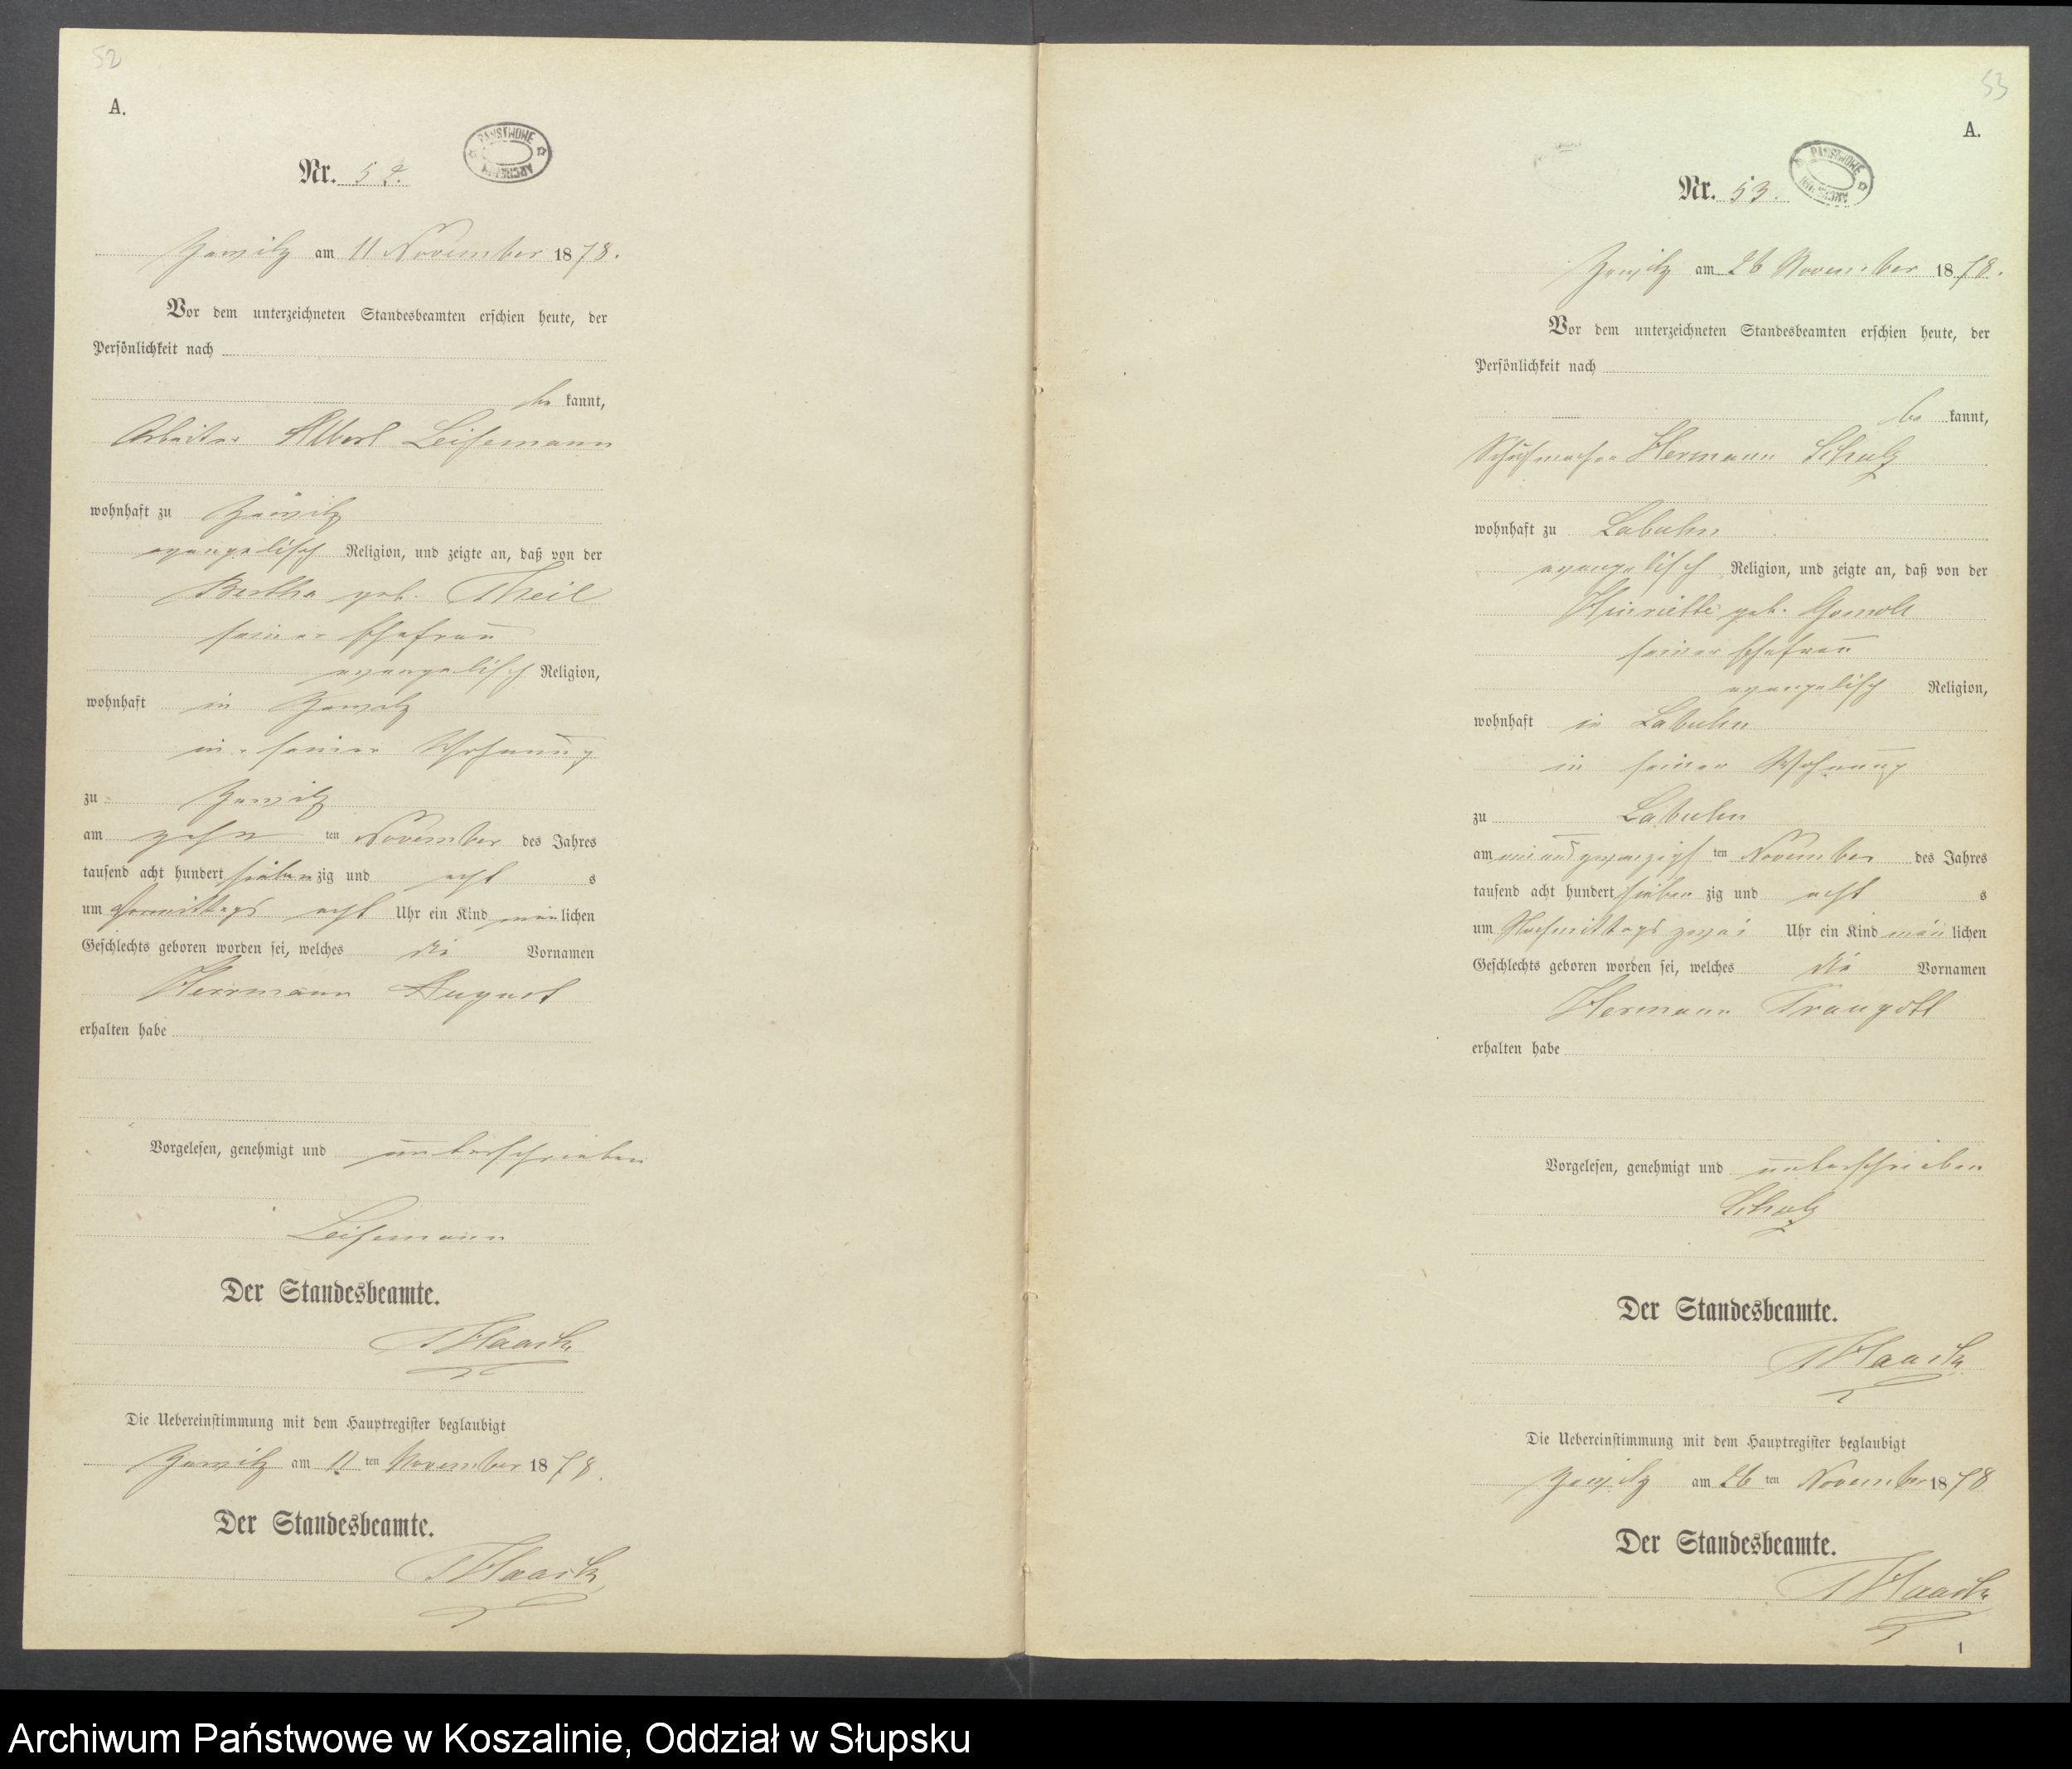 52
A.
PAŃSTWOWE ARCHIWUM
Nr. 52.
Zewitz am 11 November 1878.
Vor dem unterzeichneten Standesbeamten erschien heute, der
Persönlichkeit nach
be kannt,
Arbeiter Albert Leisemann
wohnhaft zu Zewitz
evangelisch Religion, und zeigte an, daß von der
Bertha geb. Theil
seiner Ehefrau
evangelisch Religion,
wohnhaft in Zewitz
in seiner Wohnung
zu Zewitz
am zehn ten November des Jahres
tausend acht hundert sieben zig und acht s
um Vormittags acht Uhr ein Kind män lichen
Geschlechts geboren worden sei, welches die Vornamen
Herrmann August
erhalten habe
Vorgelesen, genehmigt und unterschrieben
Leisemann
Der Standesbeamte.
Haack
Die Uebereinstimmung mit dem Hauptregister beglaubigt
Zewitz am 11 ten November 1878.
Der Standesbeamte.
Haack
53
A.
PAŃSTWOWE ARCHIWUM
Nr. 53.
Zewitz am 26 November 1878.
Vor dem unterzeichneten Standesbeamten erschien heute, der
Persönlichkeit nach
be kannt,
Schuhmacher Hermann Schulz
wohnhaft zu Labuhn
evangelisch Religion, und zeigte an, daß von der
Henriette geb. Gomoll
seiner Ehefrau
evangelisch Religion,
wohnhaft in Labuhn
in seiner Wohnung
zu Labuhn
am ten November des Jahres
tausend acht hundert sieben zig und acht s
um Nachmittags zwei Uhr ein Kind män lichen
Geschlechts geboren worden sei, welches die Vornamen
Hermann Traugott
erhalten habe
Vorgelesen, genehmigt und unterschrieben
Schulz
Der Standesbeamte.
Haack
Die Uebereinstimmung mit dem Hauptregister beglaubigt
Zewitz am 26 ten November 1878
Der Standesbeamte.
Haack
1
Archiwum Państwowe w Koszalinie, Oddział w Słupsku